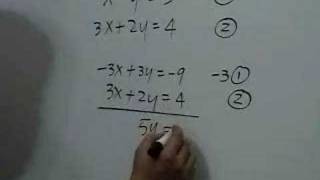 3x+2y=4 ②
-3x+3y=-9 -3①
3x+2y=4 ②
5y=